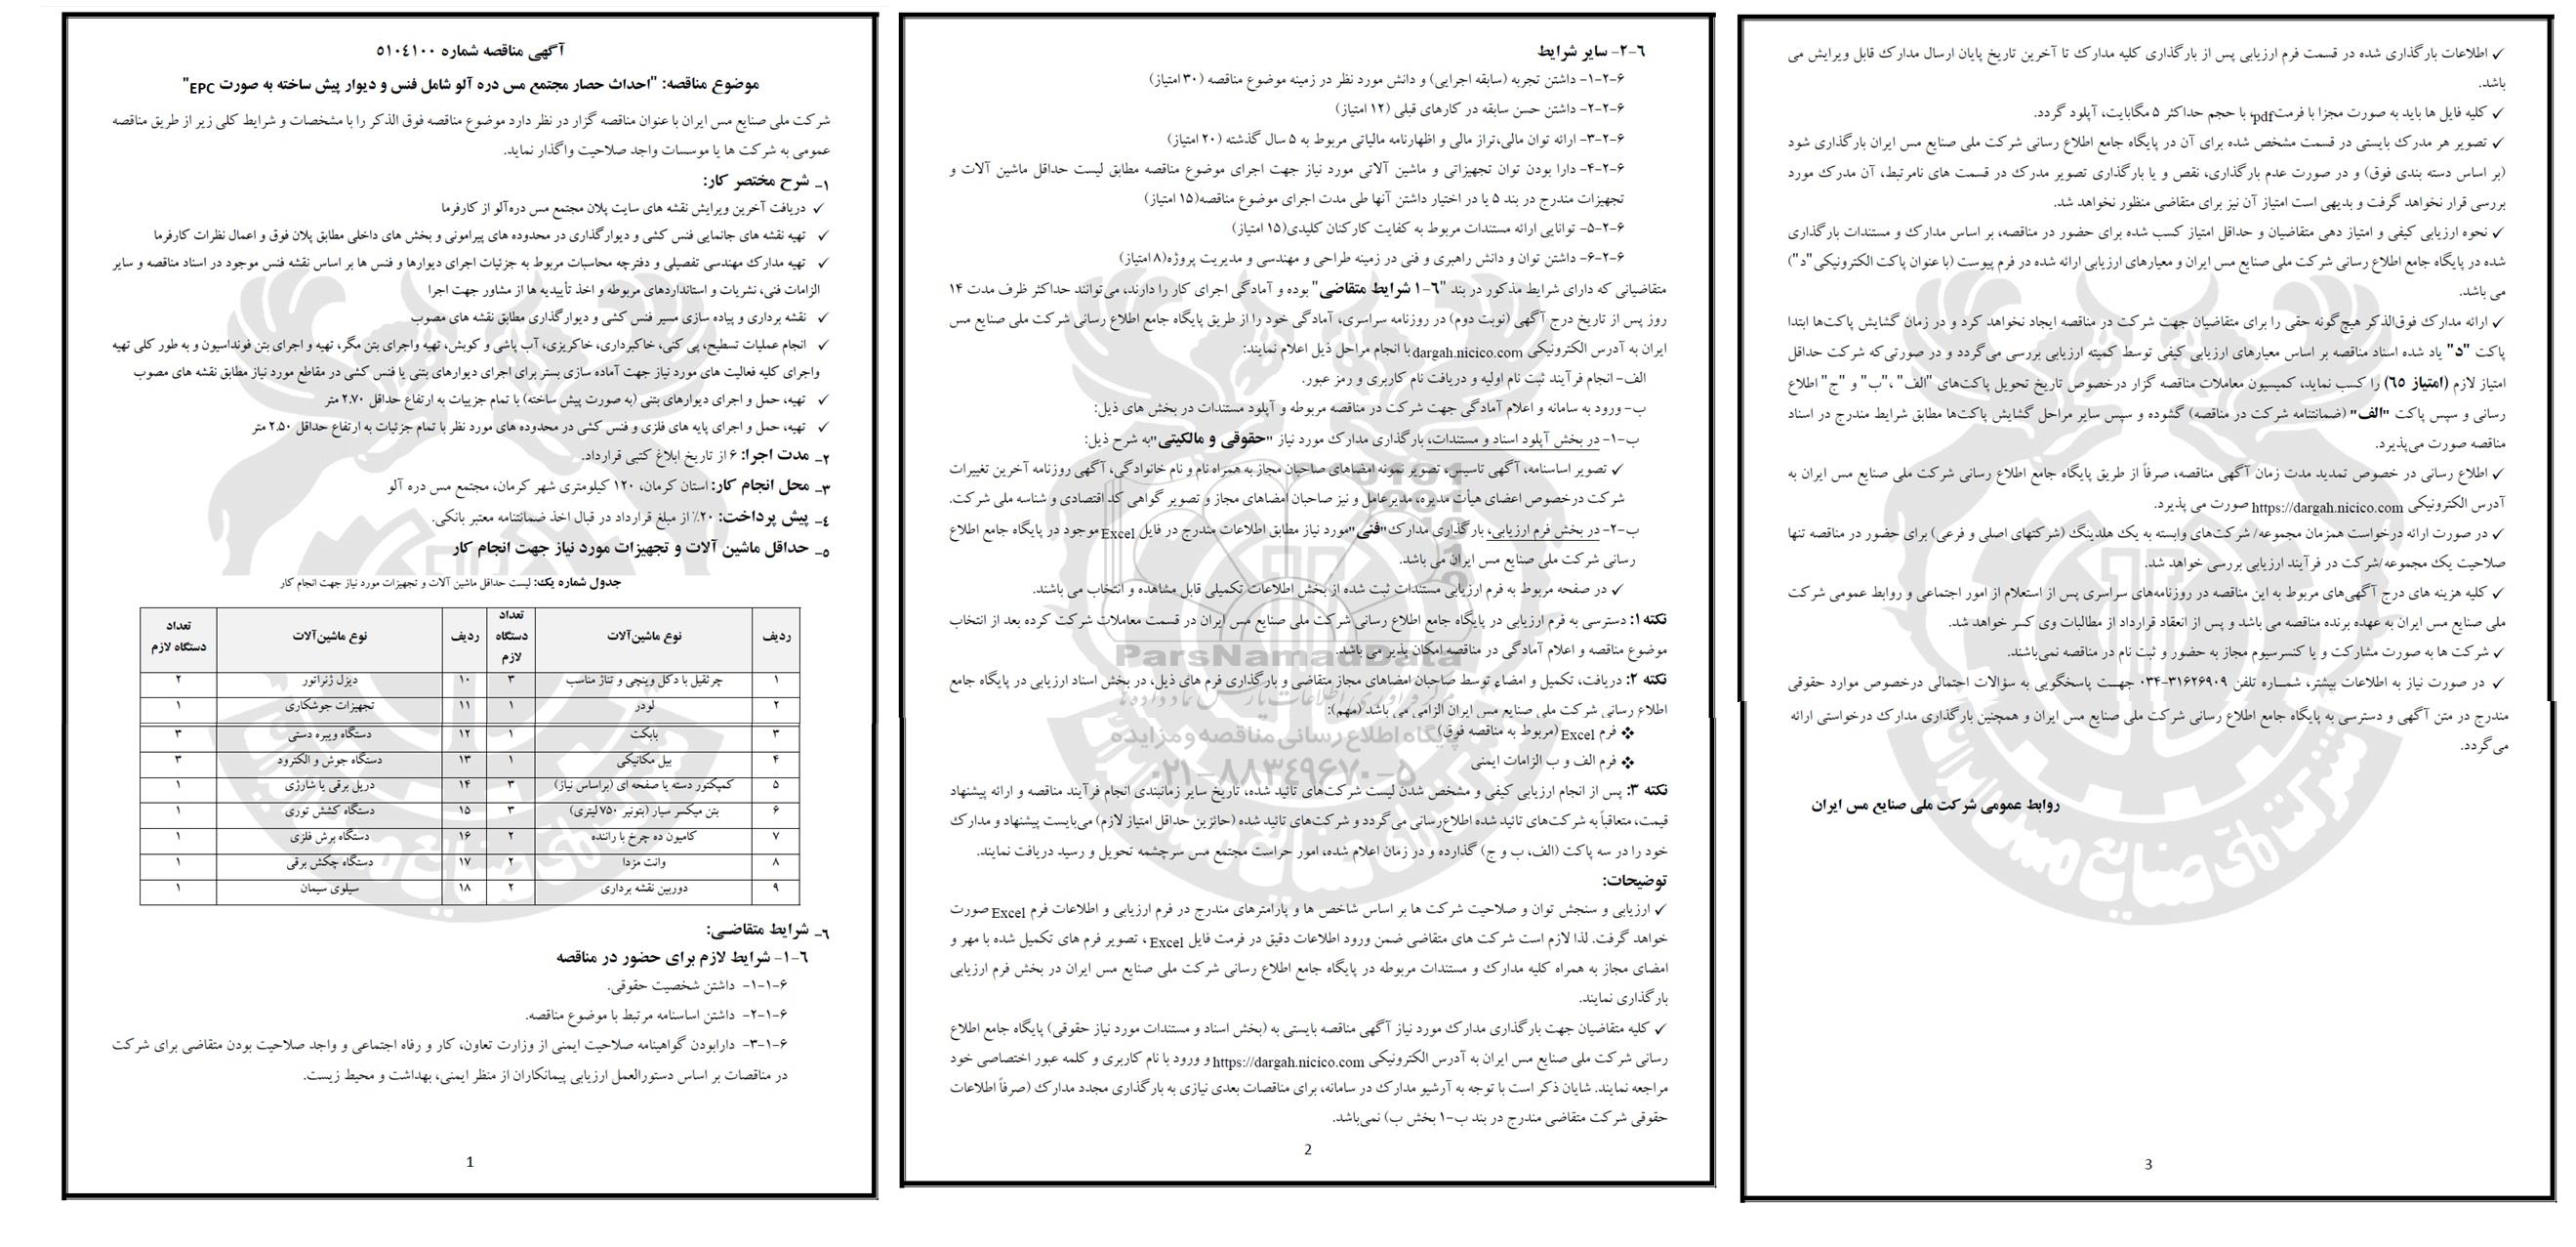 آگهی مناقصه شماره ۵۱۰٤۱۰۰
موضوع مناقصه: "احداث حصار مجتمع مس دره آلو شامل فنس و دیوار پیش ساخته به صورت EPC"
شرکت ملی صنایع مس ایران با عنوان مناقصه گزار در نظر دارد موضوع مناقصه فوق الذکر را با مشخصات و شرایط کلی زیر از طریق مناقصه
عمومی به شرکت ها یا موسسات واجد صلاحیت واگذار نماید.
۱- شرح مختصر کار:
✓ دریافت آخرین ویرایش نقشه های سایت پلان مجتمع مس دره‌آلو از کارفرما
✓ تهیه نقشه های جانمایی فنس کشی و دیوارگذاری در محدوده های پیرامونی و بخش های داخلی مطابق پلان فوق و اعمال نظرات کارفرما
✓ تهیه مدارک مهندسی تفصیلی و دفترچه محاسبات مربوط به جزئیات اجرای دیوارها و فنس ها بر اساس نقشه فنس موجود در اسناد مناقصه و سایر
الزامات فنی، نشریات و استانداردهای مربوطه و اخذ تأییدیه ها از مشاور جهت اجرا
✓ نقشه برداری و پیاده سازی مسیر فنس کشی و دیوارگذاری مطابق نقشه های مصوب
✓ انجام عملیات تسطیح، پی کنی، خاکبرداری، خاکریزی، آب پاشی و کوبش، تهیه واجرای بتن مگر، تهیه و اجرای بتن فونداسیون و به طور کلی تهیه
واجرای کلیه فعالیت های مورد نیاز جهت آماده سازی بستر برای اجرای دیوارهای بتنی یا فنس کشی در مقاطع مورد نیاز مطابق نقشه های مصوب
✓ تهیه، حمل و اجرای دیوارهای بتنی (به صورت پیش ساخته) با تمام جزییات به ارتفاع حداقل ۲.۷۰ متر
✓ تهیه، حمل و اجرای پایه های فلزی و فنس کشی در محدوده های مورد نظر با تمام جزئیات به ارتفاع حداقل ۲.۵۰ متر
۲- مدت اجرا: ۶ از تاریخ ابلاغ کتبی قرارداد.
۳- محل انجام کار: استان کرمان، ۱۲۰ کیلومتری شهر کرمان، مجتمع مس دره آلو
٤- پیش پرداخت: ۲۰٪ از مبلغ قرارداد در قبال اخذ ضمانتنامه معتبر بانکی.
۵- حداقل ماشین آلات و تجهیزات مورد نیاز جهت انجام کار
جدول شماره یک: لیست حداقل ماشین آلات و تجهیزات مورد نیاز جهت انجام کار
ردیف نوع ماشین‌آلات تعداد دستگاه لازم ردیف نوع ماشین‌آلات تعداد دستگاه لازم
۱ جرثقیل با دکل وینچی و تناژ مناسب ۳ ۱۰ دیزل ژنراتور ۲
۲ لودر ۱ ۱۱ تجهیزات جوشکاری ۱
۳ بابکت ۱ ۱۲ دستگاه ویبره دستی ۳
۴ بیل مکانیکی ۱ ۱۳ دستگاه جوش و الکترود ۳
۵ کمپکتور دسته یا صفحه ای (براساس نیاز) ۳ ۱۴ دریل برقی یا شارژی ۱
۶ بتن میکسر سیار (بتونیر ۷۵۰ لیتری) ۳ ۱۵ دستگاه کشش توری ۱
۷ کامیون ده چرخ با راننده ۲ ۱۶ دستگاه برش فلزی ۱
۸ وانت مزدا ۲ ۱۷ دستگاه چکش برقی ۱
۹ دوربین نقشه برداری ۲ ۱۸ سیلوی سیمان ۱
۶- شرایط متقاضی:
۱-۶- شرایط لازم برای حضور در مناقصه
۱-۱-۶- داشتن شخصیت حقوقی.
۲-۱-۶- داشتن اساسنامه مرتبط با موضوع مناقصه.
۳-۱-۶- دارابودن گواهینامه صلاحیت ایمنی از وزارت تعاون، کار و رفاه اجتماعی و واجد صلاحیت بودن متقاضی برای شرکت
در مناقصات بر اساس دستورالعمل ارزیابی پیمانکاران از منظر ایمنی، بهداشت و محیط زیست.
1
۲-۶- سایر شرایط
۱-۲-۶- داشتن تجربه (سابقه اجرایی) و دانش مورد نظر در زمینه موضوع مناقصه (۳۰ امتیاز)
۲-۲-۶- داشتن حسن سابقه در کارهای قبلی (۱۲ امتیاز)
۳-۲-۶- ارائه توان مالی،تراز مالی و اظهارنامه مالیاتی مربوط به ۵ سال گذشته (۲۰ امتیاز)
۴-۲-۶- دارا بودن توان تجهیزاتی و ماشین آلاتی مورد نیاز جهت اجرای موضوع مناقصه مطابق لیست حداقل ماشین آلات و
تجهیزات مندرج در بند ۵ یا در اختیار داشتن آنها طی مدت اجرای موضوع مناقصه(۱۵ امتیاز)
۵-۲-۶- توانایی ارائه مستندات مربوط به کفایت کارکنان کلیدی(۱۵ امتیاز)
۶-۲-۶- داشتن توان و دانش راهبری و فنی در زمینه طراحی و مهندسی و مدیریت پروژه(۸ امتیاز)
متقاضیانی که دارای شرایط مذکور در بند "۱-۶ شرایط متقاضی" بوده و آمادگی اجرای کار را دارند، می‌توانند حداکثر ظرف مدت ۱۴
روز پس از تاریخ درج آگهی (نوبت دوم) در روزنامه سراسری، آمادگی خود را از طریق پایگاه جامع اطلاع رسانی شرکت ملی صنایع مس
ایران به آدرس الکترونیکی dargah.nicico.com با انجام مراحل ذیل اعلام نمایند:
الف- انجام فرآیند ثبت نام اولیه و دریافت نام کاربری و رمز عبور.
ب- ورود به سامانه و اعلام آمادگی جهت شرکت در مناقصه مربوطه و آپلود مستندات در بخش های ذیل:
ب-۱- در بخش آپلود اسناد و مستندات، بارگذاری مدارک مورد نیاز "حقوقی و مالکیتی" به شرح ذیل:
✓ تصویر اساسنامه، آگهی تاسیس، تصویر نمونه امضاهای صاحبان مجاز به همراه نام و نام خانوادگی، آگهی روزنامه آخرین تغییرات
شرکت درخصوص اعضای هیأت مدیره، مدیرعامل و نیز صاحبان امضاهای مجاز و تصویر گواهی کد اقتصادی و شناسه ملی شرکت.
ب-۲- در بخش فرم ارزیابی، بارگذاری مدارک "فنی" مورد نیاز مطابق اطلاعات مندرج در فایل Excel موجود در پایگاه جامع اطلاع
رسانی شرکت ملی صنایع مس ایران می باشد.
✓ در صفحه مربوط به فرم ارزیابی مستندات ثبت شده از بخش اطلاعات تکمیلی قابل مشاهده و انتخاب می باشند.
نکته ۱: دسترسی به فرم ارزیابی در پایگاه جامع اطلاع رسانی شرکت ملی صنایع مس ایران در قسمت معاملات شرکت کرده بعد از انتخاب
موضوع مناقصه و اعلام آمادگی در مناقصه امکان پذیر می باشد.
ParsNamadData
نکته ۲: دریافت، تکمیل و امضاء توسط صاحبان امضاهای مجاز متقاضی و بارگذاری فرم های ذیل، در بخش اسناد ارزیابی در پایگاه جامع
اطلاع رسانی شرکت ملی صنایع مس ایران الزامی می باشد (مهم):
❖ فرم Excel (مربوط به مناقصه فوق)
پایگاه اطلاع رسانی مناقصه و مزایده
❖ فرم الف و ب الزامات ایمنی
۰۲۱-۸۸۳۴۹۶۷۰-۵
نکته ۳: پس از انجام ارزیابی کیفی و مشخص شدن لیست شرکت‌های تائید شده، تاریخ سایر زمانبندی انجام فرآیند مناقصه و ارائه پیشنهاد
قیمت، متعاقباً به شرکت‌های تائید شده اطلاع‌رسانی می‌گردد و شرکت‌های تائید شده (حائزین حداقل امتیاز لازم) می‌بایست پیشنهاد و مدارک
خود را در سه پاکت (الف، ب و ج) گذارده و در زمان اعلام شده، امور حراست مجتمع مس سرچشمه تحویل و رسید دریافت نمایند.
توضیحات:
✓ ارزیابی و سنجش توان و صلاحیت شرکت ها بر اساس شاخص ها و پارامترهای مندرج در فرم ارزیابی و اطلاعات فرم Excel صورت
خواهد گرفت. لذا لازم است شرکت های متقاضی ضمن ورود اطلاعات دقیق در فرمت فایل Excel ، تصویر فرم های تکمیل شده با مهر و
امضای مجاز به همراه کلیه مدارک و مستندات مربوطه در پایگاه جامع اطلاع رسانی شرکت ملی صنایع مس ایران در بخش فرم ارزیابی
بارگذاری نمایند.
✓ کلیه متقاضیان جهت بارگذاری مدارک مورد نیاز آگهی مناقصه بایستی به (بخش اسناد و مستندات مورد نیاز حقوقی) پایگاه جامع اطلاع
رسانی شرکت ملی صنایع مس ایران به آدرس الکترونیکی https://dargah.nicico.com و ورود با نام کاربری و کلمه عبور اختصاصی خود
مراجعه نمایند. شایان ذکر است با توجه به آرشیو مدارک در سامانه، برای مناقصات بعدی نیازی به بارگذاری مجدد مدارک (صرفاً اطلاعات
حقوقی شرکت متقاضی مندرج در بند ب-۱ بخش ب) نمی‌باشد.
2
✓ اطلاعات بارگذاری شده در قسمت فرم ارزیابی پس از بارگذاری کلیه مدارک تا آخرین تاریخ پایان ارسال مدارک قابل ویرایش می
باشد.
✓ کلیه فایل ها باید به صورت مجزا با فرمت pdf، با حجم حداکثر ۵ مگابایت، آپلود گردد.
✓ تصویر هر مدرک بایستی در قسمت مشخص شده برای آن در پایگاه جامع اطلاع رسانی شرکت ملی صنایع مس ایران بارگذاری شود
(بر اساس دسته بندی فوق) و در صورت عدم بارگذاری، نقص و یا بارگذاری تصویر مدرک در قسمت های نامرتبط، آن مدرک مورد
بررسی قرار نخواهد گرفت و بدیهی است امتیاز آن نیز برای متقاضی منظور نخواهد شد.
✓ نحوه ارزیابی کیفی و امتیاز دهی متقاضیان و حداقل امتیاز کسب شده برای حضور در مناقصه، بر اساس مدارک و مستندات بارگذاری
شده در پایگاه جامع اطلاع رسانی شرکت ملی صنایع مس ایران و معیارهای ارزیابی ارائه شده در فرم پیوست (با عنوان پاکت الکترونیکی"د")
می باشد.
✓ ارائه مدارک فوق‌الذکر هیچ‌گونه حقی را برای متقاضیان جهت شرکت در مناقصه ایجاد نخواهد کرد و در زمان گشایش پاکت‌ها ابتدا
پاکت "د" یاد شده اسناد مناقصه بر اساس معیارهای ارزیابی کیفی توسط کمیته ارزیابی بررسی می‌گردد و در صورتی‌که شرکت حداقل
امتیاز لازم (امتیاز ٦۵) را کسب نماید، کمیسیون معاملات مناقصه گزار درخصوص تاریخ تحویل پاکت‌های "الف" ،"ب" و "ج" اطلاع
رسانی و سپس پاکت "الف" (ضمانتنامه شرکت در مناقصه) گشوده و سپس سایر مراحل گشایش پاکت‌ها مطابق شرایط مندرج در اسناد
مناقصه صورت می‌پذیرد.
✓ اطلاع رسانی در خصوص تمدید مدت زمان آگهی مناقصه، صرفاً از طریق پایگاه جامع اطلاع رسانی شرکت ملی صنایع مس ایران به
آدرس الکترونیکی https://dargah.nicico.com صورت می پذیرد.
✓ در صورت ارائه درخواست همزمان مجموعه/ شرکت‌های وابسته به یک هلدینگ (شرکتهای اصلی و فرعی) برای حضور در مناقصه تنها
صلاحیت یک مجموعه/شرکت در فرآیند ارزیابی بررسی خواهد شد.
✓ کلیه هزینه های درج آگهی‌های مربوط به این مناقصه در روزنامه‌های سراسری پس از استعلام از امور اجتماعی و روابط عمومی شرکت
ملی صنایع مس ایران به عهده برنده مناقصه می باشد و پس از انعقاد قرارداد از مطالبات وی کسر خواهد شد.
✓ شرکت ها به صورت مشارکت و یا کنسرسیوم مجاز به حضور و ثبت نام در مناقصه نمی‌باشند.
✓ در صورت نیاز به اطلاعات بیشتر، شمـاره تلفن ۳۱۶۲۶۹۰۹-۰۳۴ جهـت پاسخگویی به سؤالات احتمالی درخصوص موارد حقوقی
مندرج در متن آگهی و دسترسی به پایگاه جامع اطلاع رسانی شرکت ملی صنایع مس ایران و همچنین بارگذاری مدارک درخواستی ارائه
می‌گردد.
روابط عمومی شرکت ملی صنایع مس ایران
3